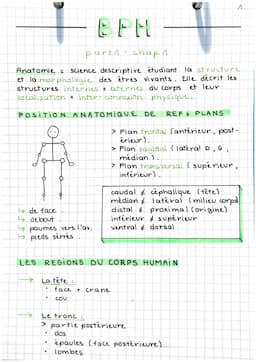 1.
BPH
part 1 - chap 1
Anatomie = science descriptive étudiant la structure
et la morphologie des êtres vivants. Elle décrit les
structures internes + externes du corps et leur
localisation + inter-connexion physique.
POSITION ANATOMIQUE DE REF + PLANS
> Plan frontal (antérieur, post-
érieur).
> Plan sagittal (latéral D, G,
médian).
> Plan transversal (supérieur,
inférieur).
caudal ≠ céphalique (tête)
médian ≠ latéral (milieu corps)
distal ≠ proximal (origine)
inférieur ≠ supérieur
ventral ≠ dorsal
↳ de face
↳ debout
↳ paumes vers l'av.
↳ pieds serrés.
LES REGIONS DU CORPS HUMAIN
→ La tête :
• face + crane
• cou
→ Le tronc :
> partie postérieure
• dos
• épaules (face postérieure)
• lombes